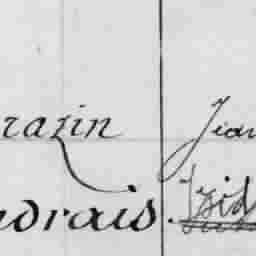 razin Jean
ndrais. Isid